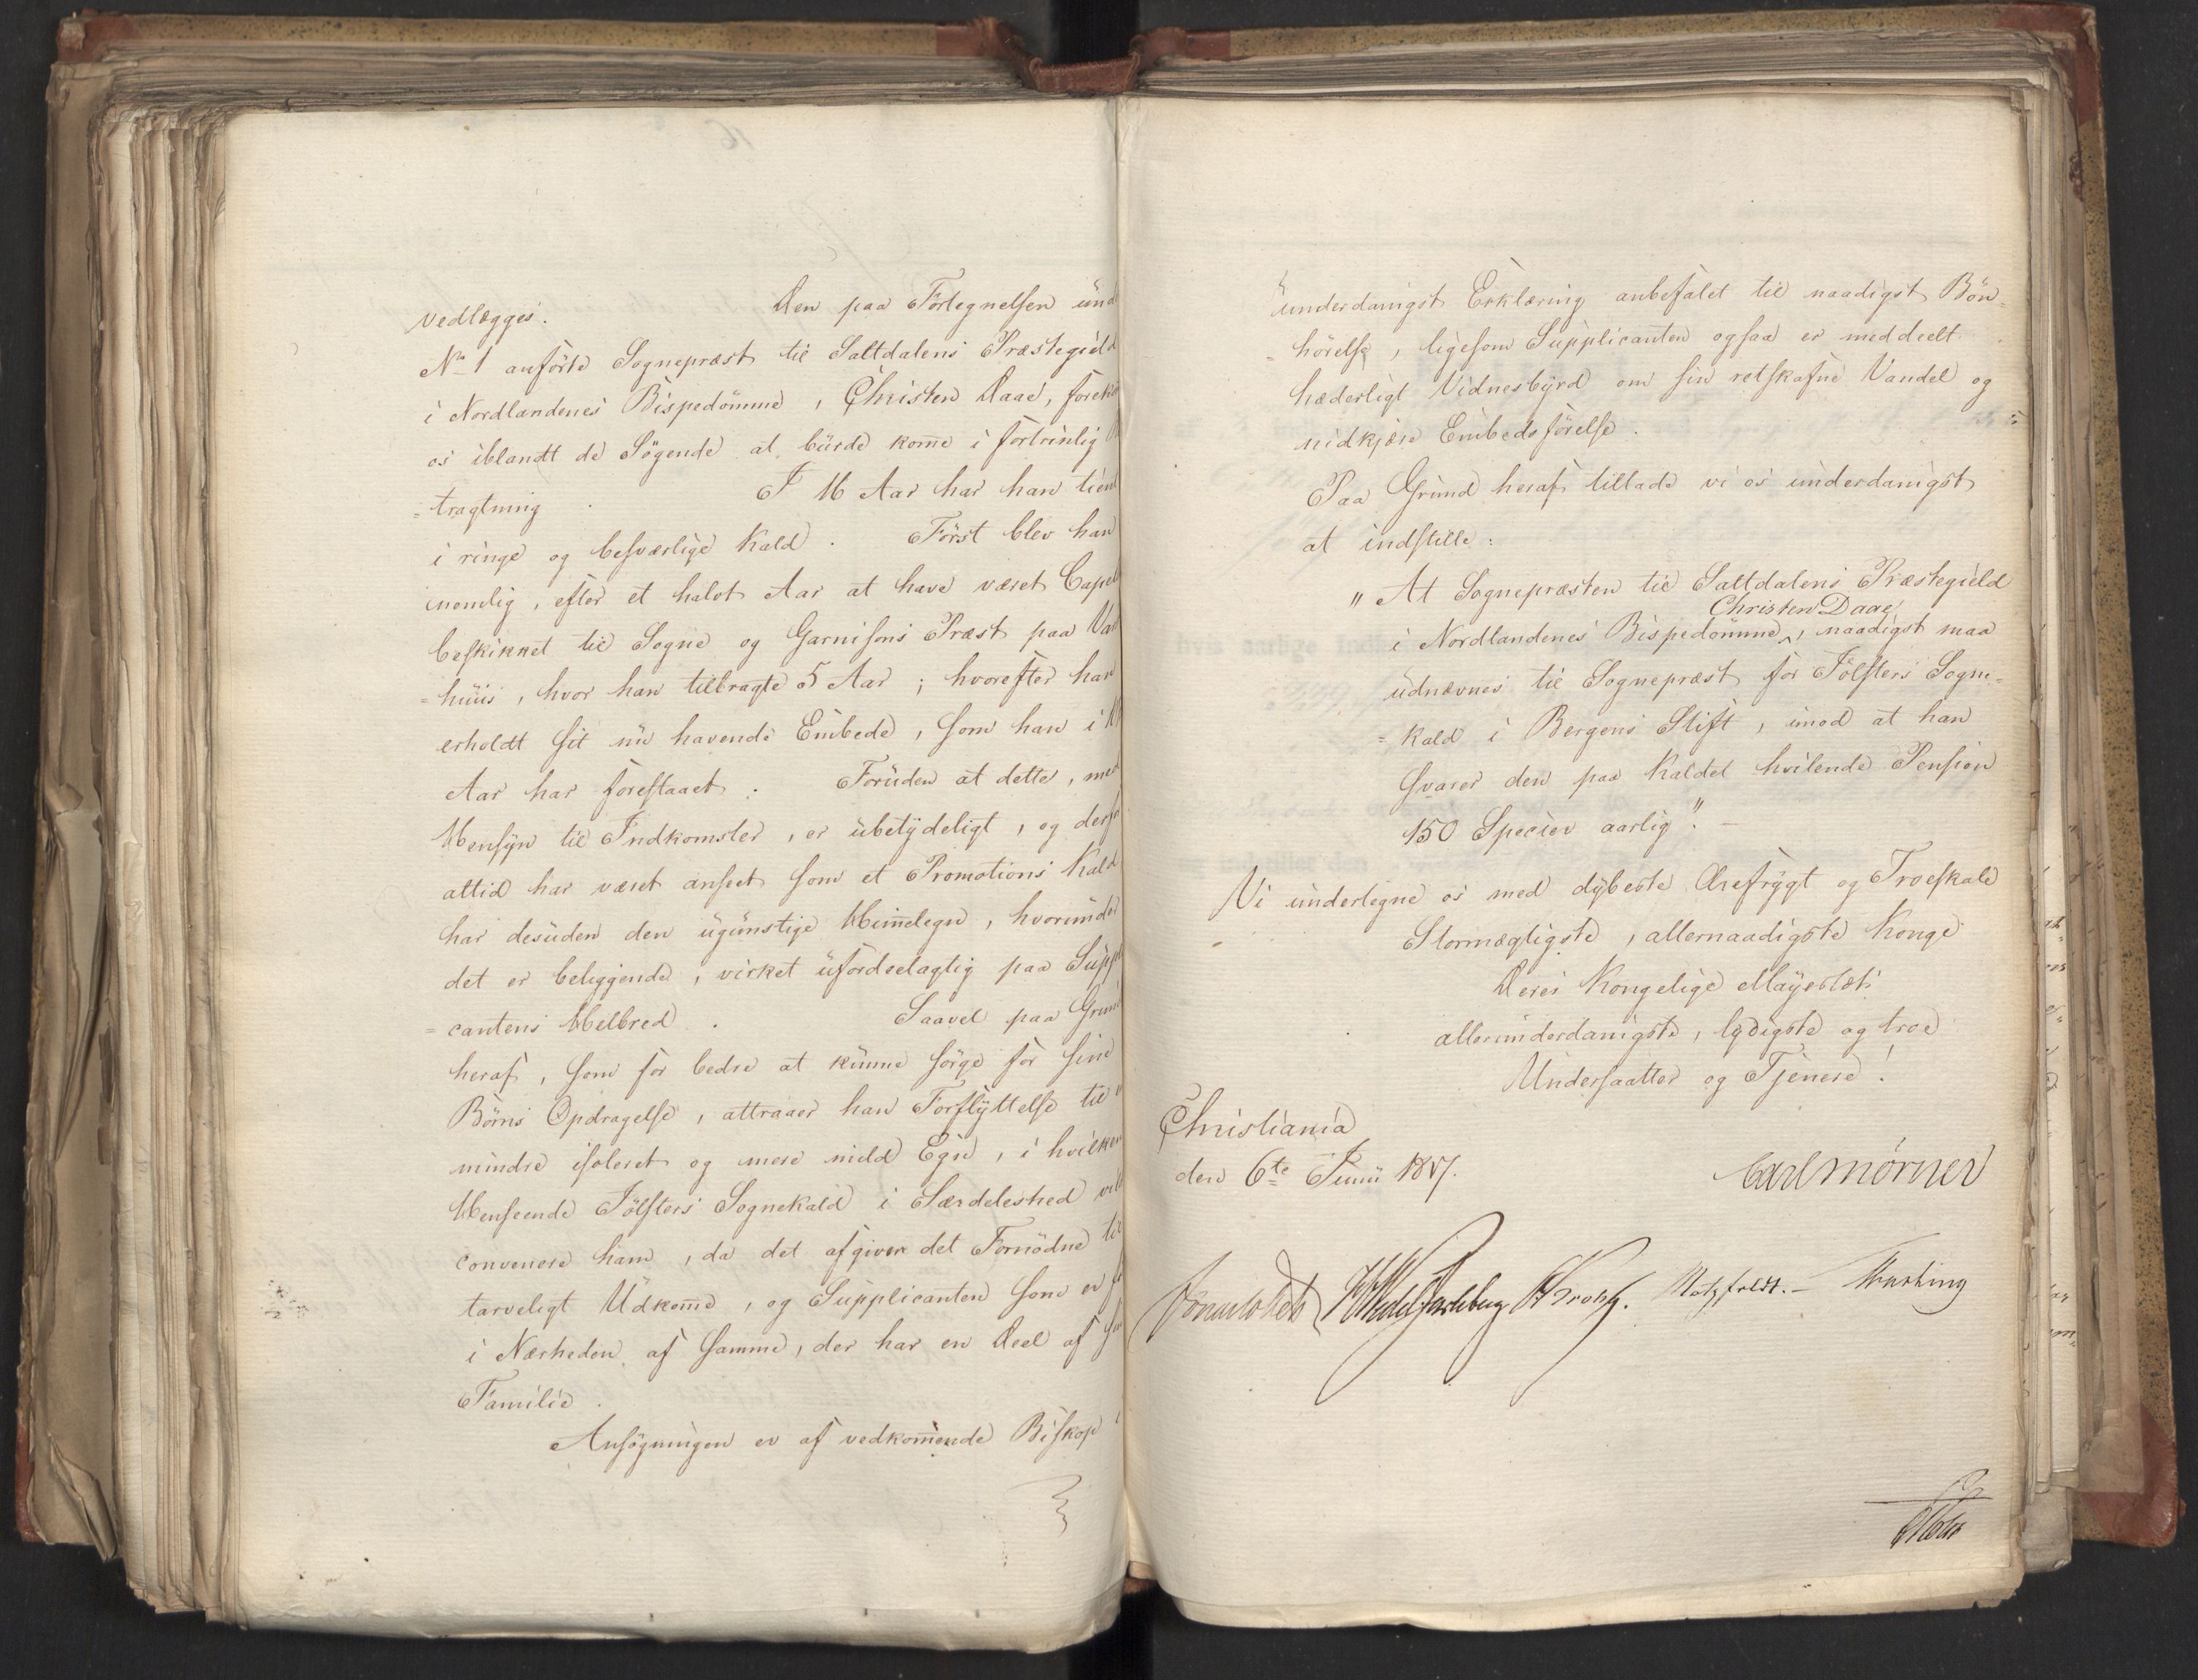 vedlægges. Den paa Förtegnelsen und
No 1 anförte Sognepræst til Saltdalens Præstegield
i Nordlandenes Bispedömme, Christen Daae, forekom
os iblandt de Søgende at burde kom̅e i fortrinlig
=tragtning. I 16 Aar har han tient
i ringe og besværlige Kald. Först blev han
nemlig, efter et halvt Aar at have været Capel
beskikket til Sogne og Garnisons Præst paa Var
=huus, hvor han tilbragte 5 Aar; hvorefter han
erholdt sit nu havende Embede, som han i
Aar har forestaaet. Foruden at dette, med
Hensyn til Indkomster, er ubetydeligt, og derfo
altid har været anseet som et Promotions Kald
har desuden den ugunstige Him̅elegn, hvorunder
det er beliggende, virket ufordeelagtig paa Suppl
=cantens Helbred. Saavel paa Grund
heraf, som for bedre at kunne sörge for sine
Börns Opdragelse, attraaer han Forflyttelse til
mindre isoleret og mere mild Egn, i hvilken
Henseende Jölsters Sognekald i Særdeleshed vil
convenere ham, da det afgiver det Fornödne til
tarveligt Udkom̅e, og Supplicanten som er fö
i Nærheden af samme, der har en Deel af sin
Familie.
Ansögningen er af vedkom̅ende Biskop
underdanigst Erklæring anbefalet til naadigst Bön=
=hörelse, ligesom Supplicanten ogsaa er meddeelt
hæderligt Vidnesbyrd om sin retskafne Vandel og
nidkjære Embedsförelse.
Paa Grund heraf tillade vi os underdanigst
at indstille:
"At Sognepræsten til Saltdalens Præstegield
Christen Daae
i Nordlandenes Bispedömme, naadigst maa
udnævnes til Sognepræst for Jölsters Sogne=
=kald i Bergens Stift, imod at han
svarer den paa Kaldet hvilende Pension
150 Specier aarlig". –
Vi undertegne os med dybeste Ærefrygt og Troeskab
Stormægtigste, allernaadigste Konge
Deres Kongelige Mayestæts
allerunderdanigste, lydigste og troe
Undersaatter og Tjenere!
Christiania
den 6te Junii 1817.
Carl Mörner
Sommerhielm HWedel Jarlsberg CKrohg. Motzfeldt. – Thrane
Holst